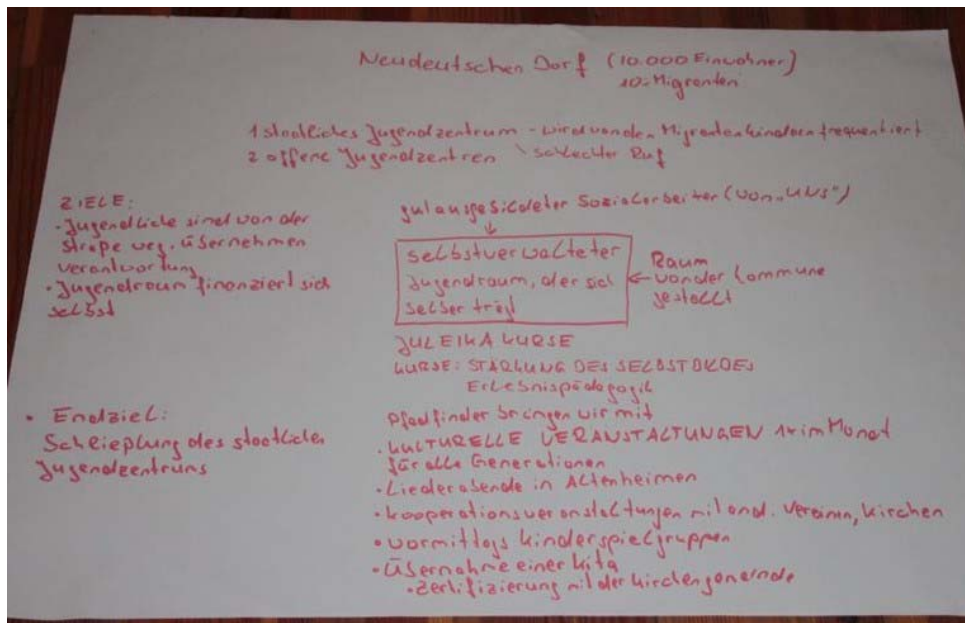 Neudeutschen Dorf (10.000 Einwohner)
10% Migranten
1 staatliches Jugendzentrum - wird von den Migrantenkindern frequentiert
2 offene Jugendzentren \ schlechter Ruf
ZIELE:
• Jugendliche sind von der
Straße weg, übernehmen
Verantwortung
• Jugendraum finanziert sich
selbst
• Endziel:
Schließung des staatlichen
Jugendzentrums
gut ausgebildeter Sozialarbeiter (von "UNS")
selbstverwalteter
Jugendraum, der sich
selber trägt
Raum
von der Kommune
gestellt
JULEIKA KURSE
KURSE: STÄRKUNG DES SELBSTBILDES
Erlebnispädagogik
Pfadfinder bringen wir mit
• KULTURELLE VERANSTALTUNGEN 1x im Monat
für alle Generationen
• Liederabende in Altenheimen
• Kooperationsveranstaltungen mit and. Vereinen, Kirchen
• vormittags Kinderspielgruppen
• Übernahme einer Kita
• Zertifizierung mit der Kirchengemeinde